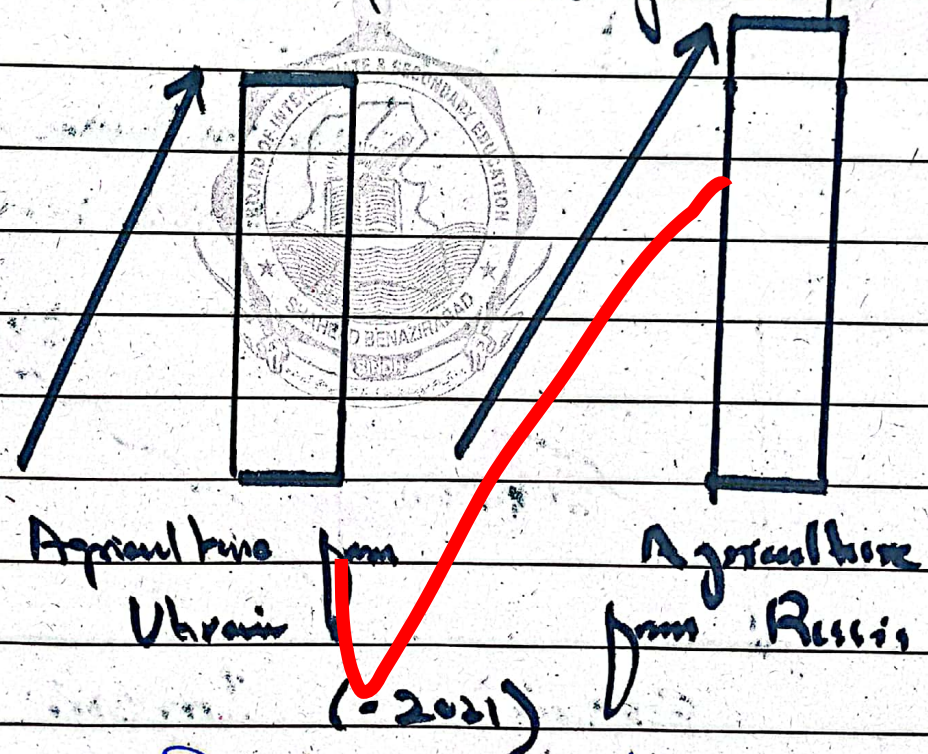 BOARD OF INTERMEDIATE & SECONDARY EDUCATION
SHAHEED BENAZIRABAD
Agriculture from Agriculture
Ukrain from Russia
(- 2021)